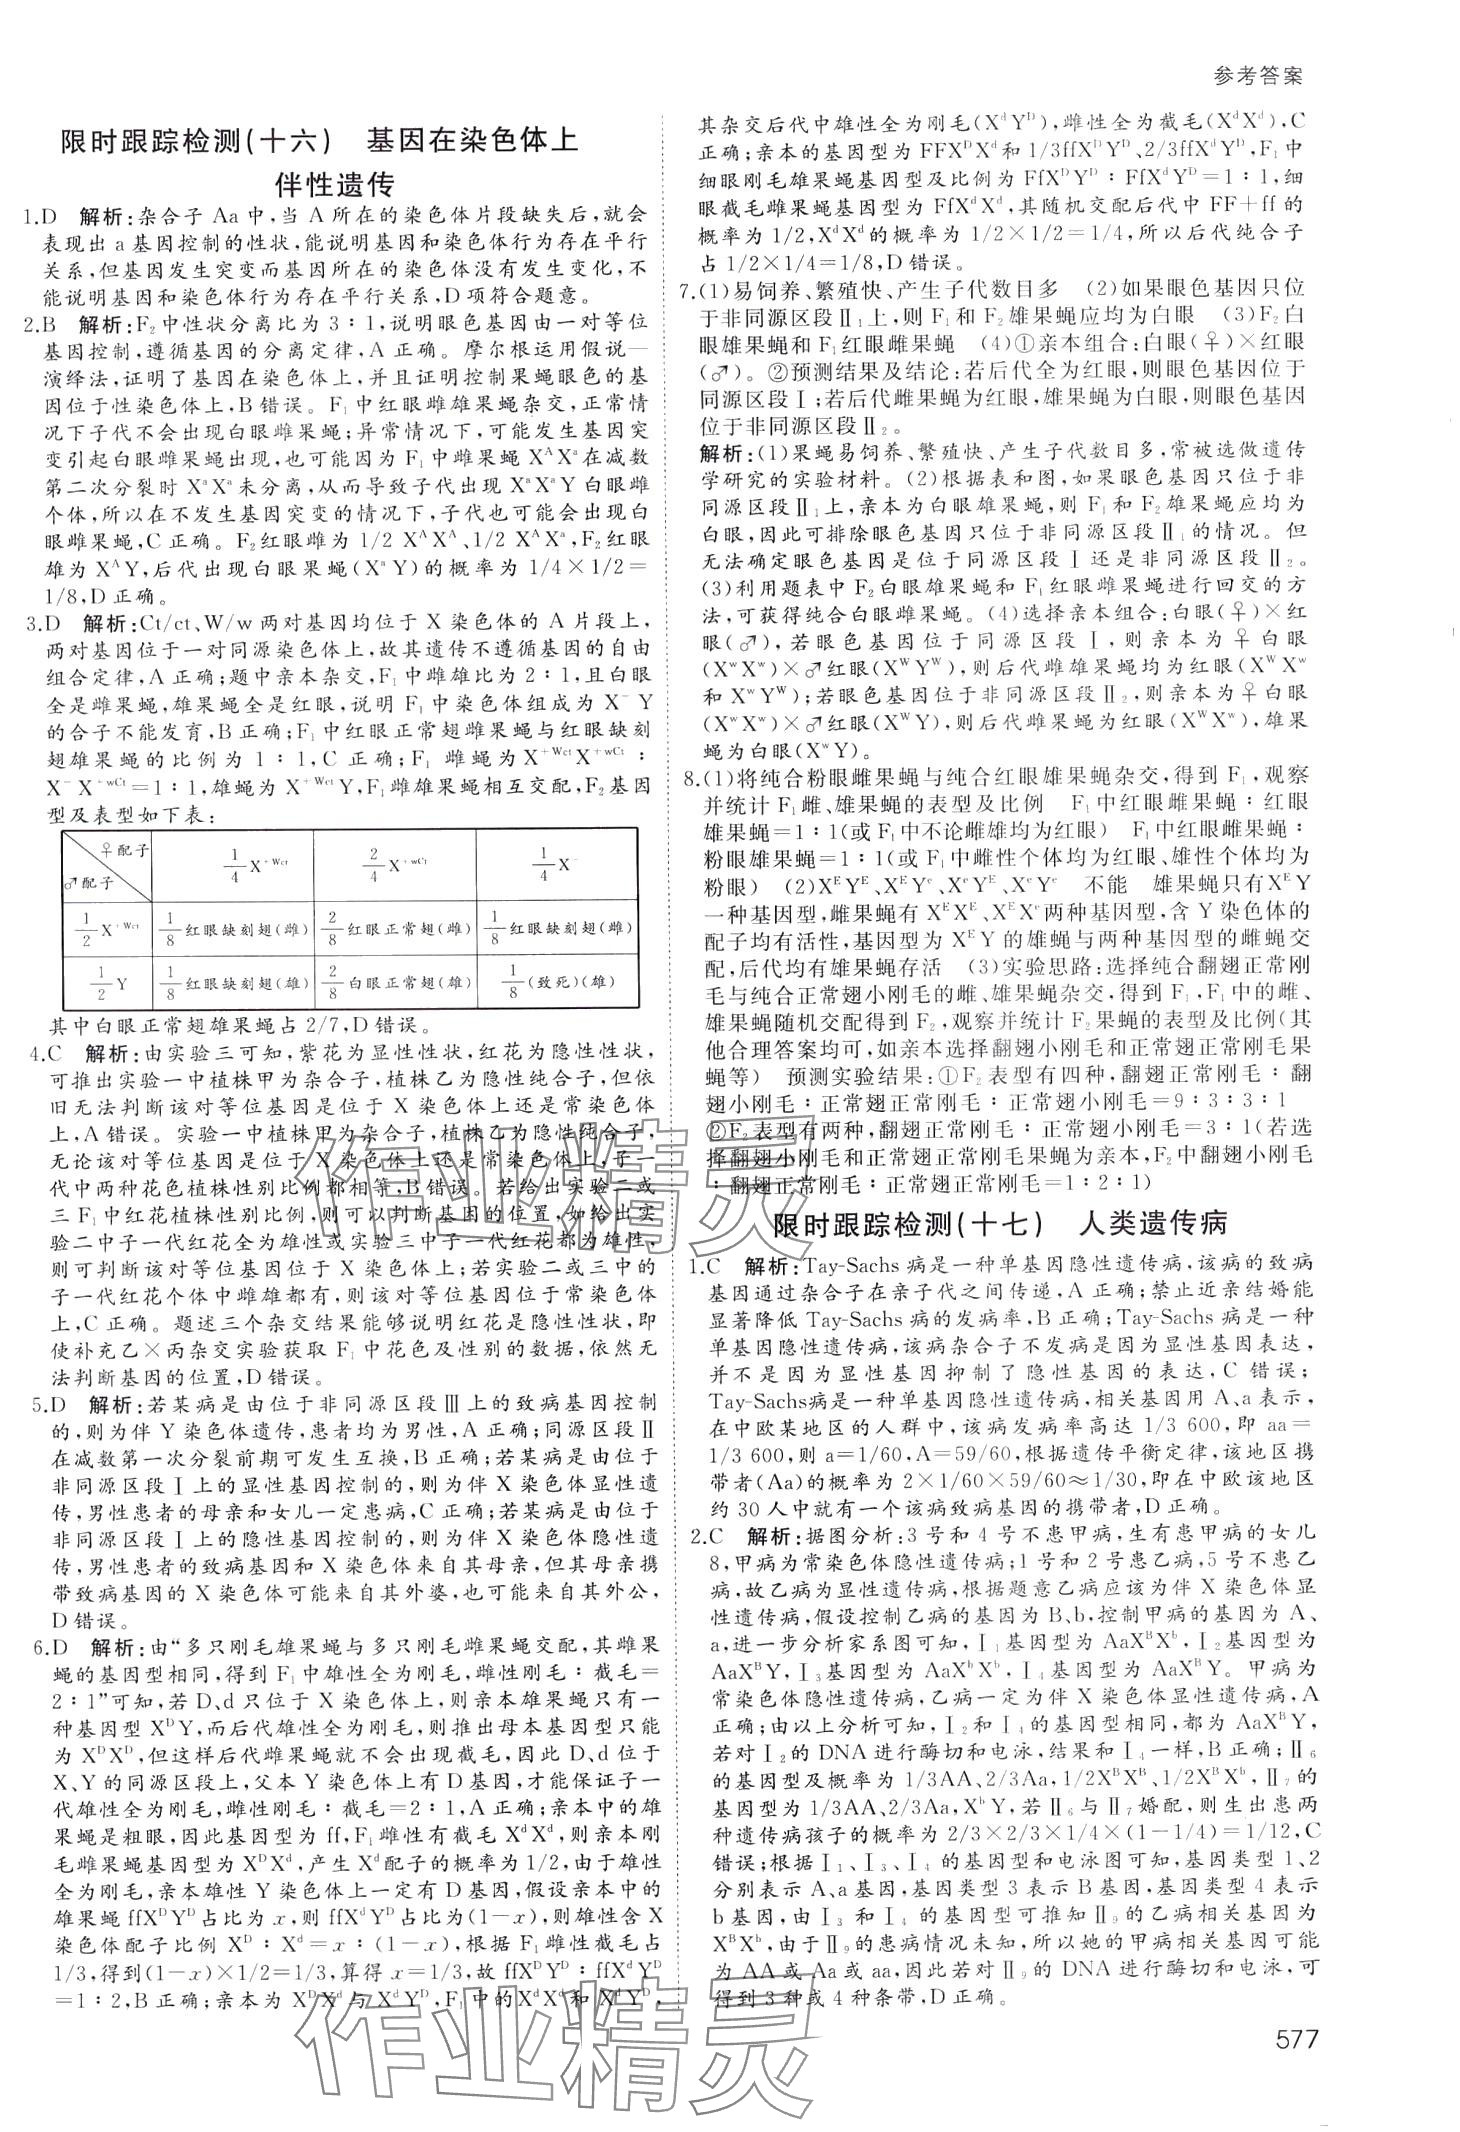 参考答案
限时跟踪检测(十六) 基因在染色体上
伴性遗传
1.D 解析:杂合子 Aa 中,当 A 所在的染色体片段缺失后,就会
表现出 a 基因控制的性状,能说明基因和染色体行为存在平行
关系,但基因发生突变而基因所在的染色体没有发生变化,不
能说明基因和染色体行为存在平行关系,D 项符合题意。
2.B 解析:F₂中性状分离比为 3∶1,说明眼色基因由一对等位
基因控制,遵循基因的分离定律,A 正确。摩尔根运用假说—
演绎法,证明了基因在染色体上,并且证明控制果蝇眼色的基
因位于性染色体上,B 错误。F₁中红眼雌雄果蝇杂交,正常情
况下子代不会出现白眼雌果蝇;异常情况下,可能发生基因突
变引起白眼雌果蝇出现,也可能因为 F₁中雌果蝇 XᴬXᵃ在减数
第二次分裂时 XᵃXᵃ未分离,从而导致子代出现 XᵃXᵃY 白眼雌
个体,所以在不发生基因突变的情况下,子代也可能会出现白
眼雌果蝇,C 正确。F₂红眼雌为 1/2 XᴬXᴬ、1/2 XᴬXᵃ,F₂红眼
雄为 XᴬY,后代出现白眼果蝇(XᵃY)的概率为 1/4×1/2=
1/8,D 正确。
3.D 解析:Ct/ct、W/w 两对基因均位于 X 染色体的 A 片段上,
两对基因位于一对同源染色体上,故其遗传不遵循基因的自由
组合定律,A 正确;题中亲本杂交,F₁中雌雄比为 2∶1,且白眼
全是雌果蝇,雄果蝇全是红眼,说明 F₁中染色体组成为 X⁻Y
的合子不能发育,B 正确;F₁中红眼正常翅雌果蝇与红眼缺刻
翅雄果蝇的比例为 1∶1,C 正确;F₁ 雌蝇为X⁺ᵂᶜᵗX⁺ʷᶜᵗ∶
X⁻X⁺ʷᶜᵗ=1∶1,雄蝇为 X⁺ᵂᶜᵗY,F₁雌雄果蝇相互交配,F₂基因
型及表型如下表:
♀配子 ♂配子 1/4 X⁺ᵂᶜᵗ 2/4 X⁺ʷᶜᵗ 1/4 X⁻
1/2 X⁺ᵂᶜᵗ 1/8 红眼缺刻翅(雌) 2/8 红眼正常翅(雌) 1/8 红眼缺刻翅(雌)
1/2 Y 1/8 红眼缺刻翅(雄) 2/8 白眼正常翅(雄) 1/8 (致死)(雄)
其中白眼正常翅雄果蝇占 2/7,D 错误。
4.C 解析:由实验三可知,紫花为显性性状,红花为隐性性状,
可推出实验一中植株甲为杂合子,植株乙为隐性纯合子,但依
旧无法判断该对等位基因是位于 X 染色体上还是常染色体
上,A 错误。实验一中植株甲为杂合子,植株乙为隐性纯合子,
无论该对等位基因是位于 X 染色体上还是常染色体上,子一
代中两种花色植株性别比例都相等,B 错误。若给出实验二或
三 F₁中红花植株性别比例,则可以判断基因的位置,如给出实
验二中子一代红花全为雄性或实验三中红花都为雄性,
则可判断该对等位基因位于 X 染色体上;若实验二或三中的
子一代红花个体中雌雄都有,则该对等位基因位于常染色体
上,C 正确。题述三个杂交结果能够说明红花是隐性性状,即
使补充乙×丙杂交实验获取 F₁中花色及性别的数据,依然无
法判断基因的位置,D 错误。
5.D 解析:若某病是由位于非同源区段Ⅲ上的致病基因控制
的,则为伴 Y 染色体遗传,患者均为男性,A 正确;同源区段Ⅱ
在减数第一次分裂前期可发生互换,B 正确;若某病是由位于
非同源区段Ⅰ上的显性基因控制的,则为伴 X 染色体显性遗
传,男性患者的母亲和女儿一定患病,C 正确;若某病是由位于
非同源区段Ⅰ上的隐性基因控制的,则为伴 X 染色体隐性遗
传,男性患者的致病基因和 X 染色体来自其母亲,但其母亲携
带致病基因的 X 染色体可能来自其外婆,也可能来自其外公,
D 错误。
6.D 解析:由“多只刚毛雄果蝇与多只刚毛雌果蝇交配,其雌果
蝇的基因型相同,得到 F₁中雄性全为刚毛,雌性刚毛∶截毛=
2∶1”可知,若 D、d 只位于 X 染色体上,则亲本雄果蝇只有一
种基因型 XᴰY,而后代雄性全为刚毛,则推出母本基因型只能
为 XᴰXᴰ,但这样后代雌果蝇就不会出现截毛,因此 D、d 位于
X、Y 的同源区段上,父本 Y 染色体上有 D 基因,才能保证子一
代雄性全为刚毛,雌性刚毛∶截毛=2∶1,A 正确;亲本中的雄
果蝇是粗眼,因此基因型为 ff,F₁雌性有截毛 XᵈXᵈ,则亲本刚
毛雌果蝇基因型为 XᴰXᵈ,产生 Xᵈ配子的概率为 1/2,由于雄性
全为刚毛,亲本雄性 Y 染色体上一定有 D 基因,假设亲本中的
雄果蝇 ffXᴰYᴰ占比为 x,则 ffXᵈYᴰ占比为(1−x),则雄性含 X
染色体配子比例 Xᴰ∶Xᵈ=x∶(1−x),根据 F₁雌性截毛占
1/3,得到(1−x)×1/2=1/3,算得 x=1/3,故 ffXᴰYᴰ∶ffXᵈYᴰ
=1∶2,B 正确;亲本为 XᴰXᵈ与 XᵈYᴰ,F₁中的 XᵈXᵈ和 XᵈYᴰ,
其杂交后代中雄性全为刚毛(XᵈYᴰ),雌性全为截毛(XᵈXᵈ),C
正确;亲本的基因型为 FFXᴰXᵈ和 1/3ffXᴰYᴰ、2/3ffXᵈYᴰ,F₁中
细眼刚毛雄果蝇基因型及比例为 FfXᴰYᴰ∶FfXᵈYᴰ=1∶1,细
眼截毛雌果蝇基因型为 FfXᵈXᵈ,其随机交配后代中 FF+ff 的
概率为 1/2,XᵈXᵈ的概率为 1/2×1/2=1/4,所以后代纯合子
占 1/2×1/4=1/8,D 错误。
7.(1)易饲养、繁殖快、产生子代数目多 (2)如果眼色基因只位
于非同源区段Ⅱ₁上,则 F₁和 F₂雄果蝇应均为白眼 (3)F₂白
眼雄果蝇和 F₁红眼雌果蝇 (4)①亲本组合:白眼(♀)×红眼
(♂)。②预测结果及结论:若后代全为红眼,则眼色基因位于
同源区段Ⅰ;若后代雌果蝇为红眼,雄果蝇为白眼,则眼色基因
位于非同源区段Ⅱ₂。
解析:(1)果蝇易饲养、繁殖快、产生子代数目多,常被选做遗传
学研究的实验材料。(2)根据表和图,如果眼色基因只位于非
同源区段Ⅱ₁上,亲本为白眼雄果蝇,则 F₁和 F₂雄果蝇应均为
白眼,因此可排除眼色基因只位于非同源区段Ⅱ₁的情况。但
无法确定眼色基因是位于同源区段Ⅰ还是非同源区段Ⅱ₂。
(3)利用题表中 F₂白眼雄果蝇和 F₁红眼雌果蝇进行回交的方
法,可获得纯合白眼雌果蝇。(4)选择亲本组合:白眼(♀)×红
眼(♂),若眼色基因位于同源区段Ⅰ,则亲本为♀白眼
(XʷXʷ)×♂红眼(XᵂYᵂ),则后代雌雄果蝇均为红眼(XᵂXʷ
和 XʷYᵂ);若眼色基因位于非同源区段Ⅱ₂,则亲本为♀白眼
(XʷXʷ)×♂红眼(XᵂY),则后代雌果蝇为红眼(XᵂXʷ),雄果
蝇为白眼(XʷY)。
8.(1)将纯合粉眼雌果蝇与纯合红眼雄果蝇杂交,得到 F₁,观察
并统计 F₁雌、雄果蝇的表型及比例 F₁中红眼雌果蝇∶红眼
雄果蝇=1∶1(或 F₁中不论雌雄均为红眼) F₁中红眼雌果蝇∶
粉眼雄果蝇=1∶1(或 F₁中雌性个体均为红眼、雄性个体均为
粉眼) (2)XᴱYᴱ、XᴱYᵉ、XᵉYᴱ、XᵉYᵉ 不能 雄果蝇只有XᴱY
一种基因型,雌果蝇有 XᴱXᴱ、XᴱXᵉ两种基因型,含 Y 染色体的
配子均有活性,基因型为 XᴱY 的雄蝇与两种基因型的雌蝇交
配,后代均有雄果蝇存活 (3)实验思路:选择纯合翻翅正常刚
毛与纯合正常翅小刚毛的雌、雄果蝇杂交,得到 F₁,F₁中的雌、
雄果蝇随机交配得到 F₂,观察并统计 F₂果蝇的表型及比例(其
他合理答案均可,如亲本选择翻翅小刚毛和正常翅正常刚毛果
蝇等) 预测实验结果:①F₂表型有四种,翻翅正常刚毛∶翻
翅小刚毛∶正常翅正常刚毛∶正常翅小刚毛=9∶3∶3∶1
②F₂表型有两种,翻翅正常刚毛∶正常翅小刚毛=3∶1(若选
择翻翅小刚毛和正常翅正常刚毛果蝇为亲本,F₂中翻翅小刚毛
∶翻翅正常刚毛∶正常翅正常刚毛=1∶2∶1)
限时跟踪检测(十七) 人类遗传病
1.C 解析:Tay-Sachs 病是一种单基因隐性遗传病,该病的致病
基因通过杂合子在亲子代之间传递,A 正确;禁止近亲结婚能
显著降低 Tay-Sachs 病的发病率,B 正确;Tay-Sachs 病是一种
单基因隐性遗传病,该病杂合子不发病是因为显性基因表达,
并不是因为显性基因抑制了隐性基因的表达,C 错误;
Tay-Sachs病是一种单基因隐性遗传病,相关基因用 A、a 表示,
在中欧某地区的人群中,该病发病率高达 1/3 600,即 aa=
1/3 600,则 a=1/60,A=59/60,根据遗传平衡定律,该地区携
带者(Aa)的概率为 2×1/60×59/60≈1/30,即在中欧该地区
约 30 人中就有一个该病致病基因的携带者,D 正确。
2.C 解析:据图分析:3 号和 4 号不患甲病,生有患甲病的女儿
8,甲病为常染色体隐性遗传病;1 号和 2 号患乙病,5 号不患乙
病,故乙病为显性遗传病,根据题意乙病应该为伴 X 染色体显
性遗传病,假设控制乙病的基因为 B、b,控制甲病的基因为 A、
a,进一步分析家系图可知,Ⅰ₁基因型为 AaXᴮXᵇ,Ⅰ₂基因型为
AaXᴮY,Ⅰ₃基因型为 AaXᵇXᵇ,Ⅰ₄基因型为 AaXᴮY。甲病为
常染色体隐性遗传病,乙病一定为伴 X 染色体显性遗传病,A
正确;由以上分析可知,Ⅰ₂和Ⅰ₄的基因型相同,都为 AaXᴮY,
若对Ⅰ₂的 DNA 进行酶切和电泳,结果和Ⅰ₄一样,B 正确;Ⅱ₆
的基因型及概率为 1/3AA、2/3Aa,1/2XᴮXᴮ、1/2XᴮXᵇ,Ⅱ₇的
基因型为 1/3AA、2/3Aa,XᵇY,若Ⅱ₆与Ⅱ₇婚配,则生出患两
种遗传病孩子的概率为 2/3×2/3×1/4×(1−1/4)=1/12,C
错误;根据Ⅰ₁、Ⅰ₃、Ⅰ₄的基因型和电泳图可知,基因类型 1、2
分别表示 A、a 基因,基因类型 3 表示 B 基因,基因类型 4 表示
b 基因,由Ⅰ₃和Ⅰ₄的基因型可推知Ⅱ₉的乙病相关基因为
XᴮXᵇ,由于Ⅱ₉的患病情况未知,所以她的甲病相关基因可能
为 AA 或 Aa 或 aa,因此若对Ⅱ₉的 DNA 进行酶切和电泳,可
得到 3 种或 4 种条带,D 正确。
作业精灵
作业精灵
577